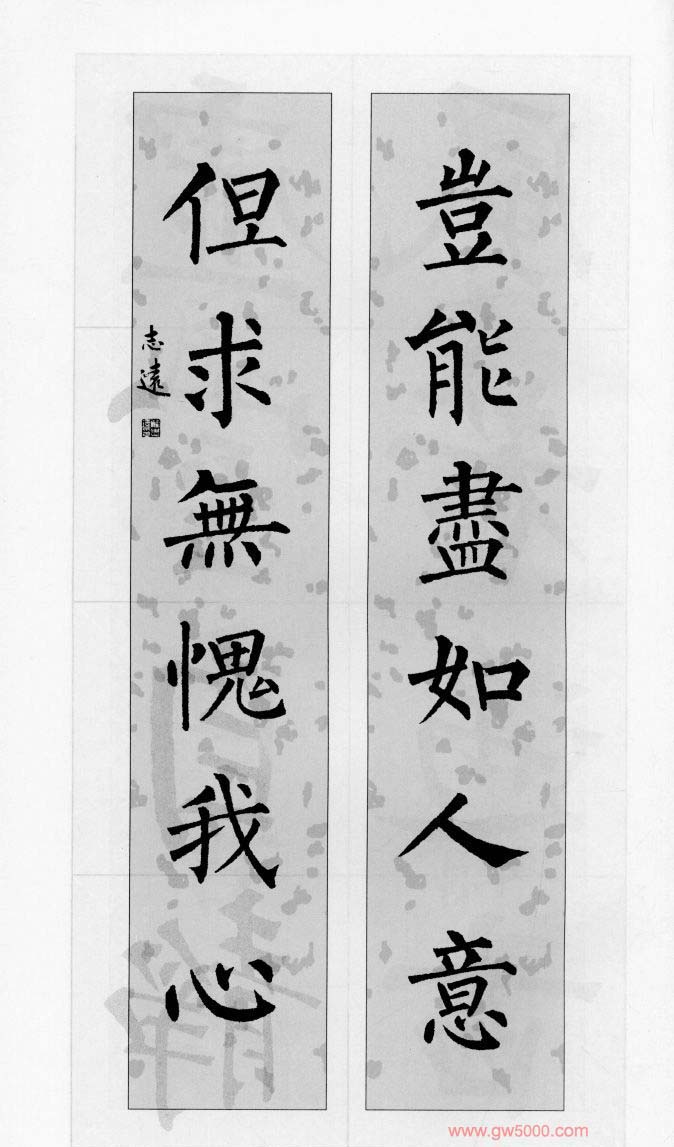 豈能盡如人意
但求無愧我心
志遠
www.gw5000.com